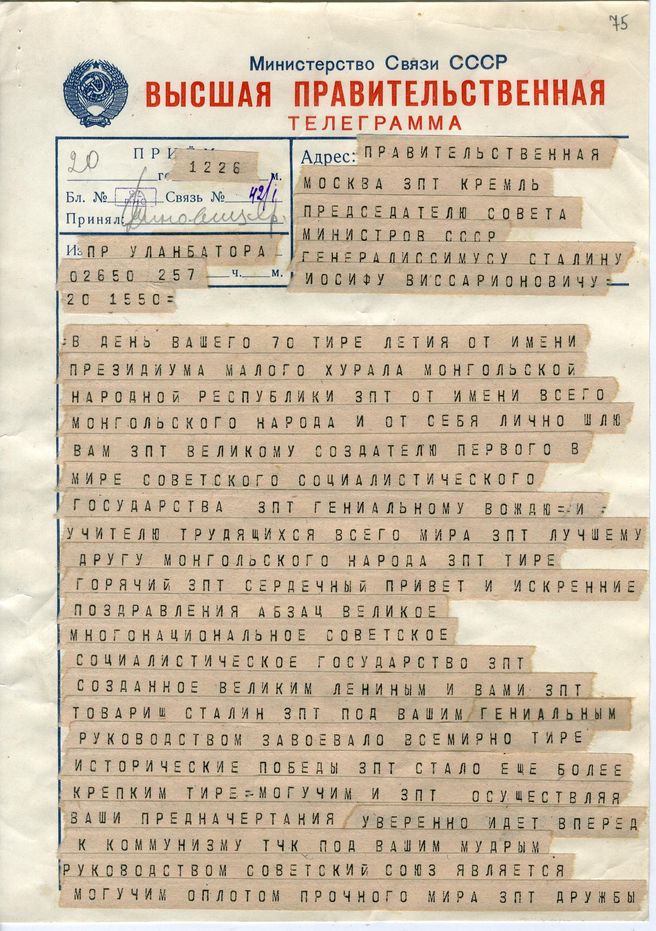 75
Министерство Связи СССР
ВЫСШАЯ ПРАВИТЕЛЬСТВЕННАЯ
ТЕЛЕГРАММА
20
ПРИЁМ
1226 м.
Бл. № Связь № 42/1
Принял:
Из ПР УЛАНБАТОРА
02650 257 ч. м.
20 1550=
Адрес: ПРАВИТЕЛЬСТВЕННАЯ
МОСКВА ЗПТ КРЕМЛЬ
ПРЕДСЕДАТЕЛЮ СОВЕТА
МИНИСТРОВ СССР
ГЕНЕРАЛИССИМУСУ СТАЛИНУ
ИОСИФУ ВИССАРИОНОВИЧУ=
=В ДЕНЬ ВАШЕГО 70 ТИРЕ ЛЕТИЯ ОТ ИМЕНИ
ПРЕЗИДИУМА МАЛОГО ХУРАЛА МОНГОЛЬСКОЙ
НАРОДНОЙ РЕСПУБЛИКИ ЗПТ ОТ ИМЕНИ ВСЕГО
МОНГОЛЬСКОГО НАРОДА И ОТ СЕБЯ ЛИЧНО ШЛЮ
ВАМ ЗПТ ВЕЛИКОМУ СОЗДАТЕЛЮ ПЕРВОГО В
МИРЕ СОВЕТСКОГО СОЦИАЛИСТИЧЕСКОГО
ГОСУДАРСТВА ЗПТ ГЕНИАЛЬНОМУ ВОЖДЮ=И =
УЧИТЕЛЮ ТРУДЯЩИХСЯ ВСЕГО МИРА ЗПТ ЛУЧШЕМУ
ДРУГУ МОНГОЛЬСКОГО НАРОДА ЗПТ ТИРЕ
ГОРЯЧИЙ ЗПТ СЕРДЕЧНЫЙ ПРИВЕТ И ИСКРЕННИЕ
ПОЗДРАВЛЕНИЯ АБЗАЦ ВЕЛИКОЕ
МНОГОНАЦИОНАЛЬНОЕ СОВЕТСКОЕ
СОЦИАЛИСТИЧЕСКОЕ ГОСУДАРСТВО ЗПТ
СОЗДАННОЕ ВЕЛИКИМ ЛЕНИНЫМ И ВАМИ ЗПТ
ТОВАРИЩ СТАЛИН ЗПТ ПОД ВАШИМ ГЕНИАЛЬНЫМ
РУКОВОДСТВОМ ЗАВОЕВАЛО ВСЕМИРНО ТИРЕ
ИСТОРИЧЕСКИЕ ПОБЕДЫ ЗПТ СТАЛО ЕЩЕ БОЛЕЕ
КРЕПКИМ ТИРЕ=МОГУЧИМ И ЗПТ ОСУЩЕСТВЛЯЯ
ВАШИ ПРЕДНАЧЕРТАНИЯ УВЕРЕННО ИДЕТ ВПЕРЕД
К КОММУНИЗМУ ТЧК ПОД ВАШИМ МУДРЫМ
РУКОВОДСТВОМ СОВЕТСКИЙ СОЮЗ ЯВЛЯЕТСЯ
МОГУЧИМ ОПЛОТОМ ПРОЧНОГО МИРА ЗПТ ДРУЖБЫ